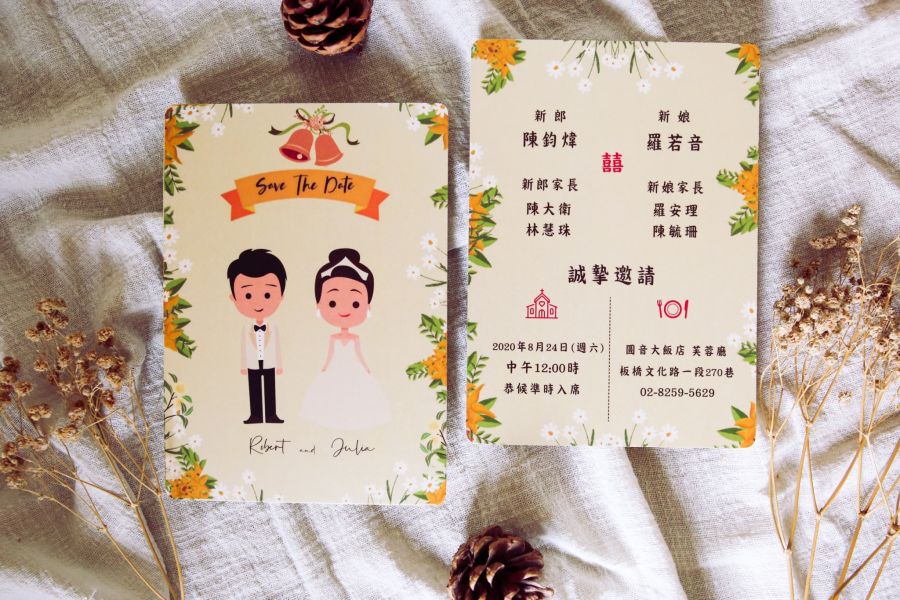 Save The Date
Robert and Julia
新郎
陳鈞煒
新娘
羅若音
囍
新郎家長
陳大衛
林慧珠
新娘家長
羅安理
陳毓珊
誠摯邀請
2020年8月24日(週六)
中午12:00時
恭候準時入席
圓音大飯店 芙蓉廳
板橋文化路一段270巷
02-8259-5629